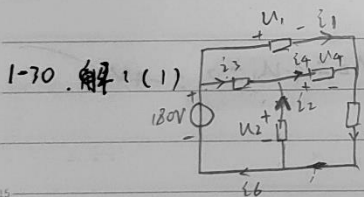 U₁ i₁
+ -
1-30. 解:(1) i₃ i₄ U₄
+ + -
180V U₂ + i₂
- -
i₆